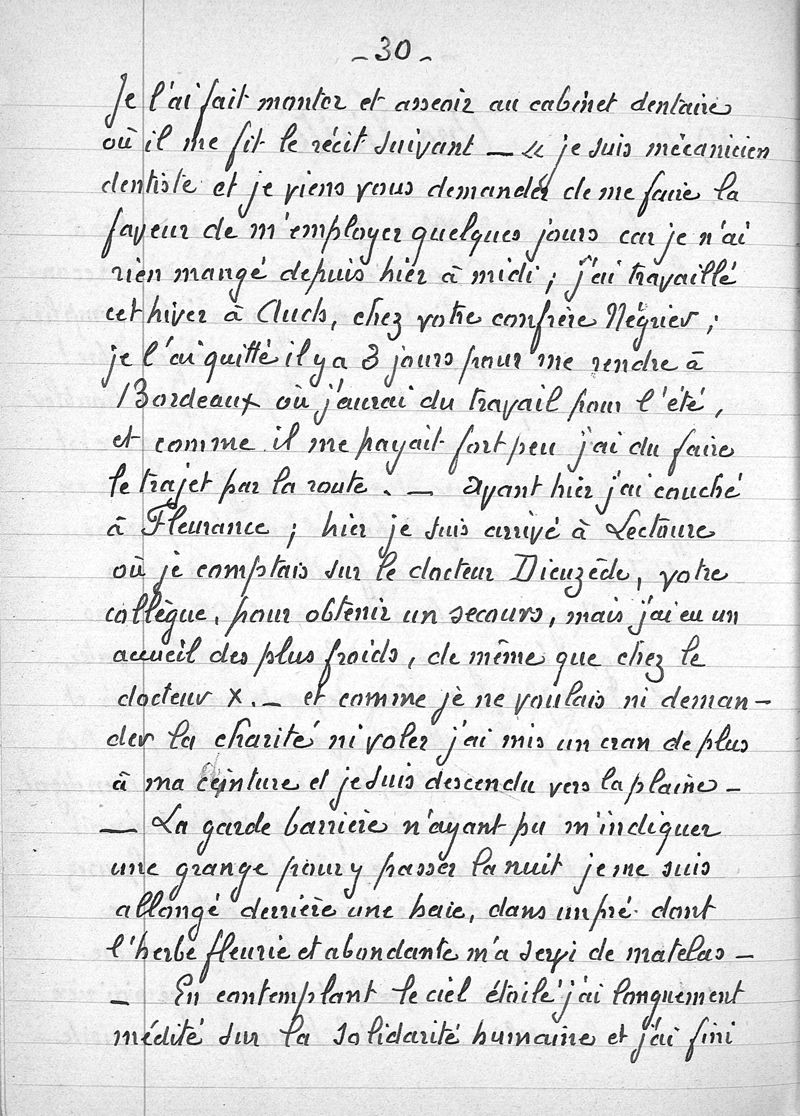 _ 30 _
Je l'ai fait monter et asseoir au cabinet dentaire
où il me fit le récit suivant _ « je suis mécanicien
dentiste et je viens vous demander de me faire la
faveur de m'employer quelques jours car je n'ai
rien mangé depuis hier à midi ; j'ai travaillé
cet hiver à Auch, chez votre confrère Négrier ;
je l'ai quitté il y a 3 jours pour me rendre à
Bordeaux où j'aurai du travail pour l'été,
et comme il me payait fort peu j'ai du faire
le trajet par la route . _ Avant hier j'ai couché
à Fleurance ; hier je suis arrivé à Lectoure
où je comptais sur le docteur Dieuzède, votre
collègue, pour obtenir un secours, mais j'ai eu un
accueil des plus froids, de même que chez le
docteur X. _ et comme je ne voulais ni deman-
der la charité ni voler j'ai mis un cran de plus
à ma ceinture et je suis descendu vers la plaine _
_ La garde barrière n'ayant pu m'indiquer
une grange pour y passer la nuit je me suis
allongé derrière une haie, dans un pré dont
l'herbe fleurie et abondante m'a servi de matelas _
_ En contemplant le ciel étoilé j'ai longuement
médité sur la solidarité humaine et j'ai fini